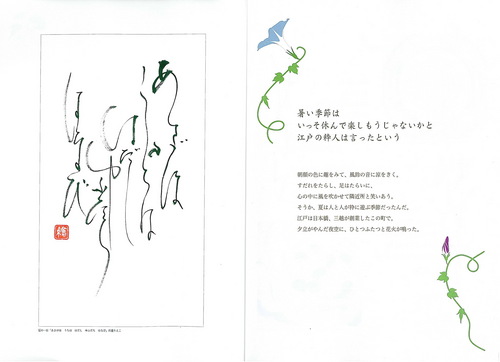 あさがほ
うちは
はなび
暑い季節は
いっそ休んで楽しもうじゃないかと
江戸の粋人は言ったという
朝顔の色に趣をみて、風鈴の音に涼をきく。
すだれをたらし、足はたらいに、
心の中に風を吹かせて隣近所と笑いあう。
そうか、夏は人と人が粋に遊ぶ季節だったんだ。
江戸は日本橋、三越が創業したこの町で。
夕立がやんだ夜空に、ひとつふたつと花火が鳴った。